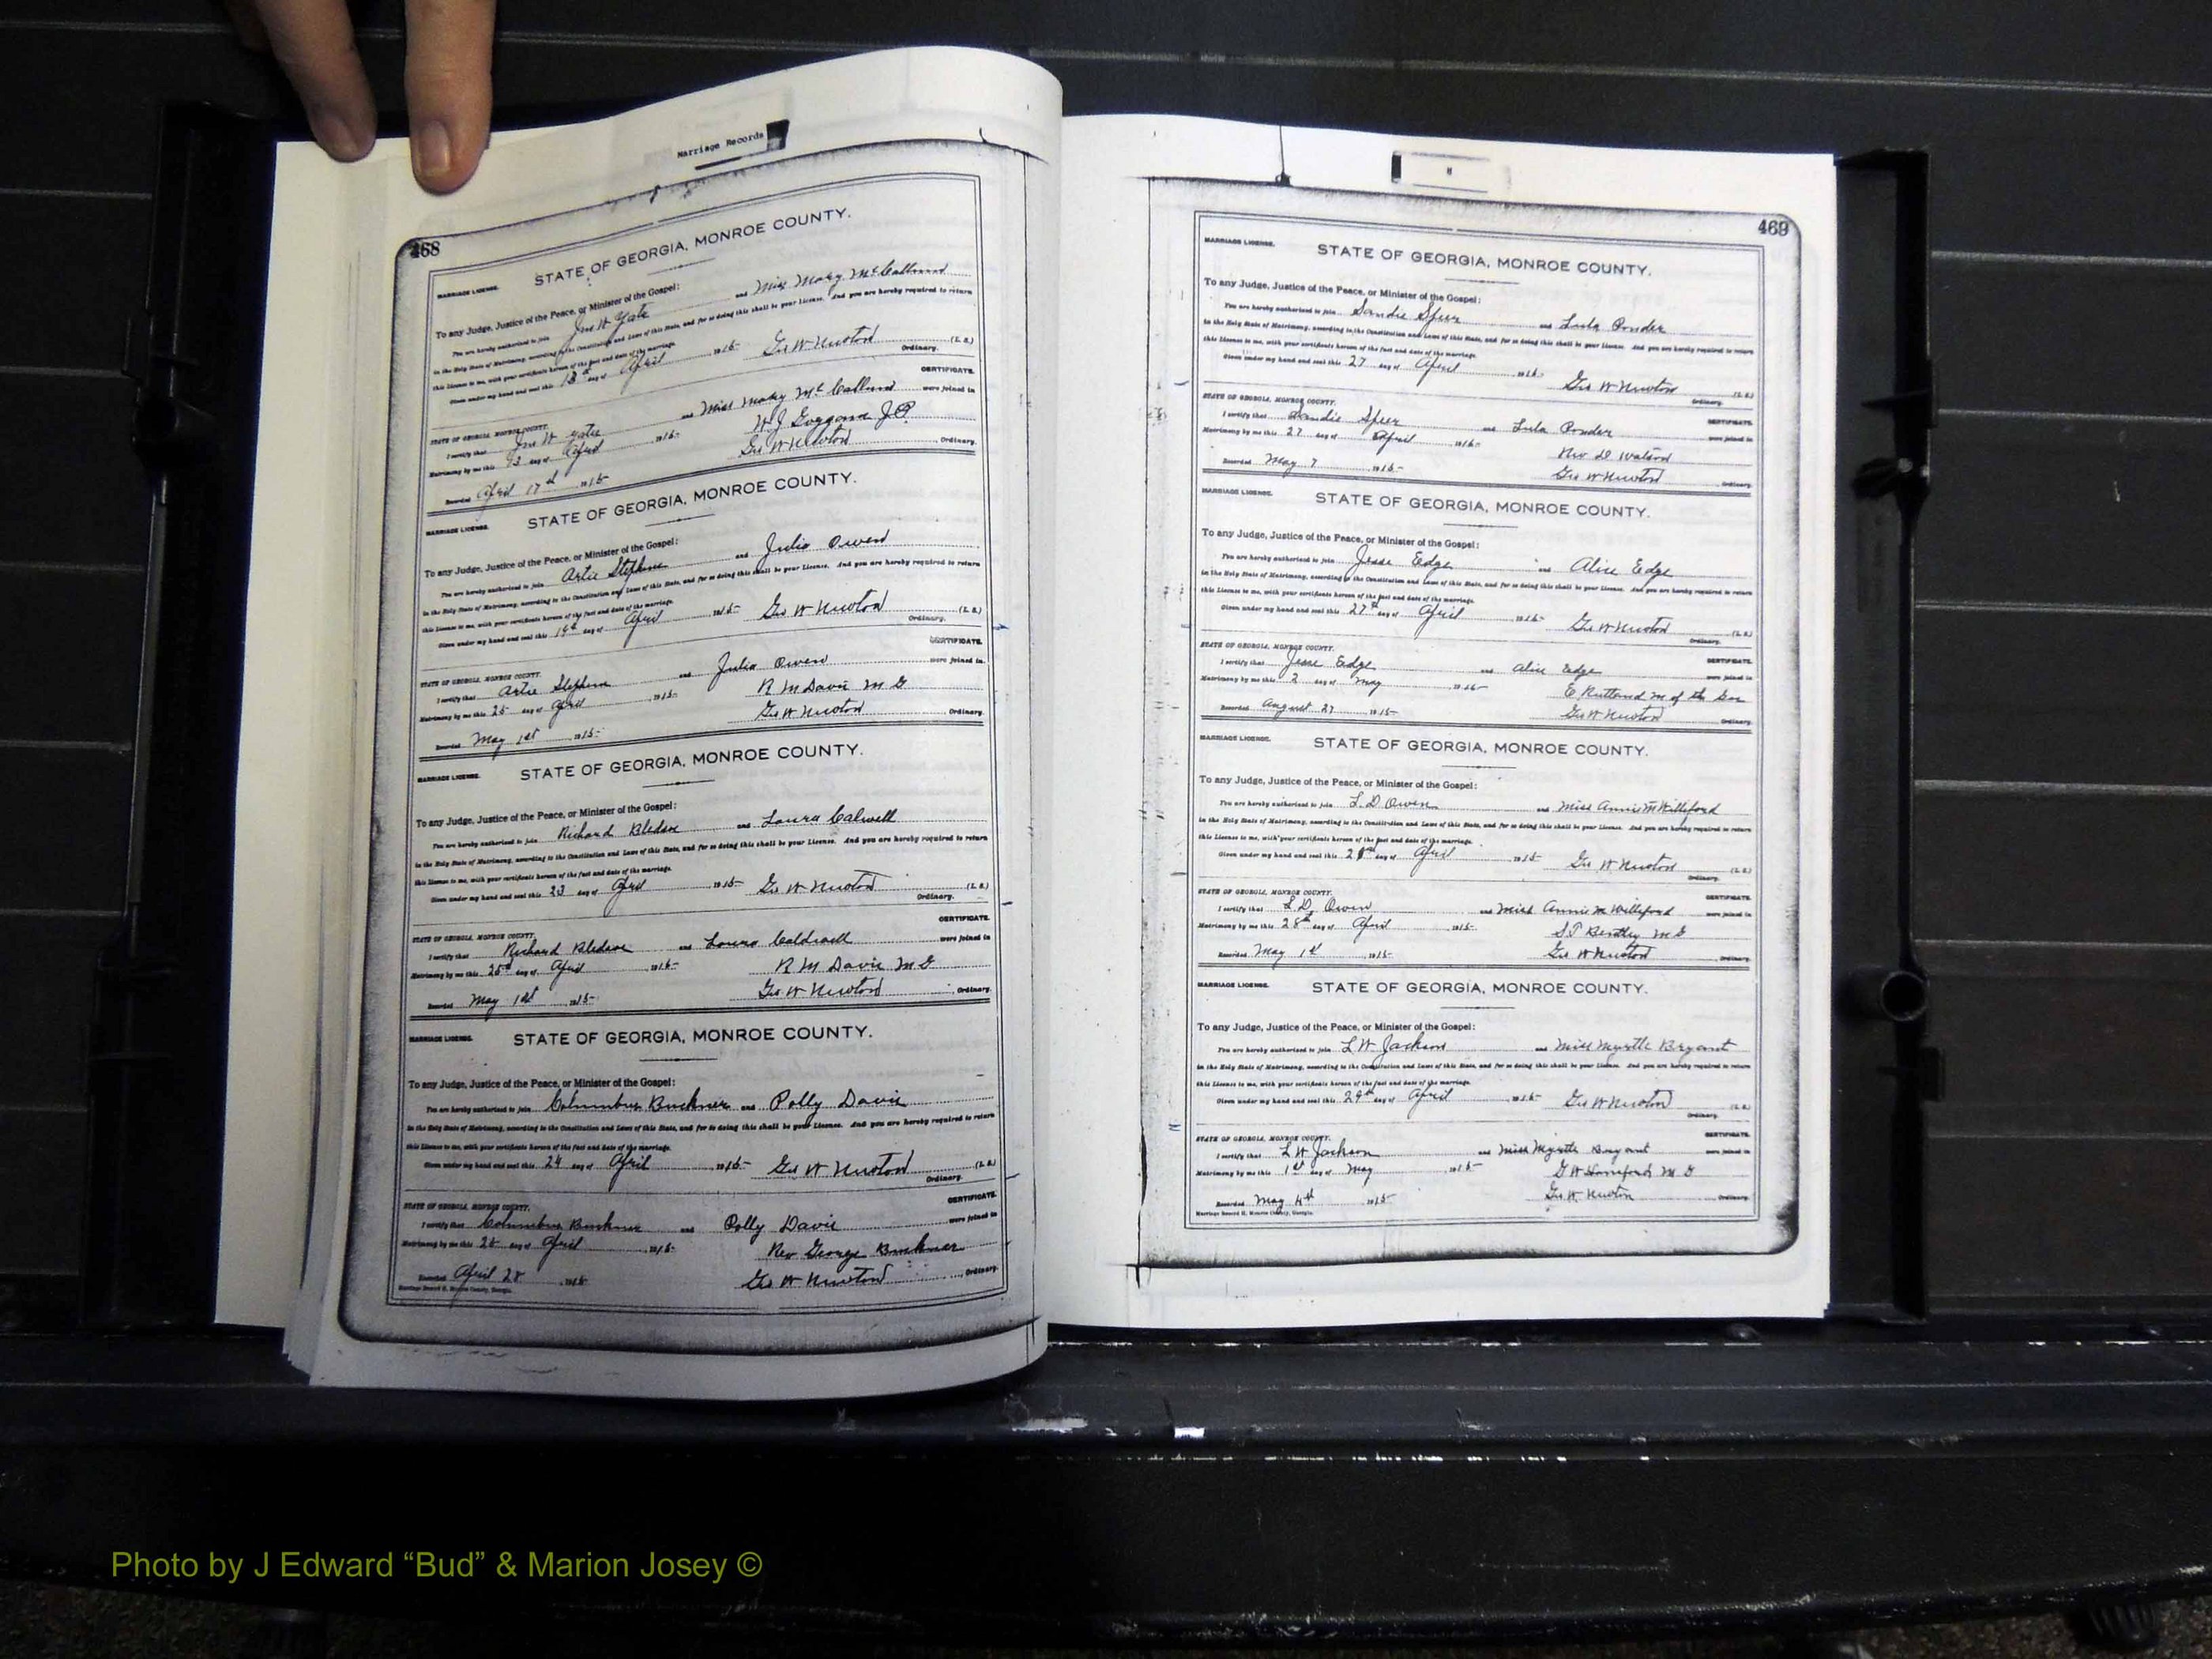 Marriage Records
468
MARRIAGE LICENSE.
STATE OF GEORGIA, MONROE COUNTY.
To any Judge, Justice of the Peace, or Minister of the Gospel:
You are hereby authorized to join Jno W Yate and Miss Mary McCallum
in the Holy State of Matrimony, according to the Constitution and Laws of this State, and for so doing this shall be your License. And you are hereby required to return
this License to me, with your certificate hereon of the fact and date of the marriage.
Given under my hand and seal this 13th day of April 1915- Geo W Newton (L. S.)
Ordinary.
CERTIFICATE.
STATE OF GEORGIA, MONROE COUNTY.
I certify that Jno W Yate and Miss Mary McCallum were joined in
Matrimony by me this 13 day of April 1915- W J Goggans J.P.
Recorded April 17th 1915- Geo W Newton Ordinary.
MARRIAGE LICENSE.
STATE OF GEORGIA, MONROE COUNTY.
To any Judge, Justice of the Peace, or Minister of the Gospel:
You are hereby authorized to join Artie Stephens and Julia Owen
in the Holy State of Matrimony, according to the Constitution and Laws of this State, and for so doing this shall be your License. And you are hereby required to return
this License to me, with your certificate hereon of the fact and date of the marriage.
Given under my hand and seal this 19th day of April 1915- Geo W Newton (L. S.)
Ordinary.
CERTIFICATE.
STATE OF GEORGIA, MONROE COUNTY.
I certify that Artie Stephens and Julia Owen were joined in
Matrimony by me this 25 day of April 1915- R M Davis M G
Recorded May 1st 1915- Geo W Newton Ordinary.
MARRIAGE LICENSE.
STATE OF GEORGIA, MONROE COUNTY.
To any Judge, Justice of the Peace, or Minister of the Gospel:
You are hereby authorized to join Richard Bledsoe and Laura Calwell
in the Holy State of Matrimony, according to the Constitution and Laws of this State, and for so doing this shall be your License. And you are hereby required to return
this License to me, with your certificate hereon of the fact and date of the marriage.
Given under my hand and seal this 23 day of April 1915- Geo W Newton (L. S.)
Ordinary.
CERTIFICATE.
STATE OF GEORGIA, MONROE COUNTY.
I certify that Richard Bledsoe and Laura Caldwell were joined in
Matrimony by me this 25th day of April 1915- R M Davis M G
Recorded May 1st 1915- Geo W Newton Ordinary.
MARRIAGE LICENSE.
STATE OF GEORGIA, MONROE COUNTY.
To any Judge, Justice of the Peace, or Minister of the Gospel:
You are hereby authorized to join Columbus Buckner and Polly Davis
in the Holy State of Matrimony, according to the Constitution and Laws of this State, and for so doing this shall be your License. And you are hereby required to return
this License to me, with your certificate hereon of the fact and date of the marriage.
Given under my hand and seal this 24 day of April 1915- Geo W Newton (L. S.)
Ordinary.
CERTIFICATE.
STATE OF GEORGIA, MONROE COUNTY.
I certify that Columbus Buckner and Polly Davis were joined in
Matrimony by me this 25 day of April 1915- Rev George Buckner
Recorded April 28 1915 Geo W Newton Ordinary.
Marriage Record H, Monroe County, Georgia.
H
469
MARRIAGE LICENSE.
STATE OF GEORGIA, MONROE COUNTY.
To any Judge, Justice of the Peace, or Minister of the Gospel:
You are hereby authorized to join Sandie Speer and Lula Ponder
in the Holy State of Matrimony, according to the Constitution and Laws of this State, and for so doing this shall be your License. And you are hereby required to return
this License to me, with your certificate hereon of the fact and date of the marriage.
Given under my hand and seal this 27 day of April 1915- Geo W Newton (L. S.)
Ordinary.
STATE OF GEORGIA, MONROE COUNTY.
CERTIFICATE.
I certify that Sandie Speer and Lula Ponder were joined in
Matrimony by me this 27 day of April 1915- Rev D Watson
Recorded May 7 1915- Geo W Newton Ordinary.
MARRIAGE LICENSE.
STATE OF GEORGIA, MONROE COUNTY.
To any Judge, Justice of the Peace, or Minister of the Gospel:
You are hereby authorized to join Jesse Edge and Alice Edge
in the Holy State of Matrimony, according to the Constitution and Laws of this State, and for so doing this shall be your License. And you are hereby required to return
this License to me, with your certificate hereon of the fact and date of the marriage.
Given under my hand and seal this 27th day of April 1915- Geo W Newton (L. S.)
Ordinary.
STATE OF GEORGIA, MONROE COUNTY.
CERTIFICATE.
I certify that Jesse Edge and Alice Edge were joined in
Matrimony by me this 2 day of May 1915- E Rutland M of the Gos
Recorded August 27 1915- Geo W Newton Ordinary.
MARRIAGE LICENSE.
STATE OF GEORGIA, MONROE COUNTY.
To any Judge, Justice of the Peace, or Minister of the Gospel:
You are hereby authorized to join L. D Owen and Miss Annie M Williford
in the Holy State of Matrimony, according to the Constitution and Laws of this State, and for so doing this shall be your License. And you are hereby required to return
this License to me, with your certificate hereon of the fact and date of the marriage.
Given under my hand and seal this day of April 1915- Geo W Newton (L. S.)
Ordinary.
STATE OF GEORGIA, MONROE COUNTY.
CERTIFICATE.
I certify that L D. Owen and Miss Annie M Williford were joined in
Matrimony by me this 28th day of April 1915- S T Bentley M G
Recorded May 1st 1915- Geo W Newton Ordinary.
MARRIAGE LICENSE.
STATE OF GEORGIA, MONROE COUNTY.
To any Judge, Justice of the Peace, or Minister of the Gospel:
You are hereby authorized to join L W Jackson and Miss Myrtle Bryant
in the Holy State of Matrimony, according to the Constitution and Laws of this State, and for so doing this shall be your License. And you are hereby required to return
this License to me, with your certificate hereon of the fact and date of the marriage.
Given under my hand and seal this 29th day of April 1915- Geo W Newton (L. S.)
Ordinary.
STATE OF GEORGIA, MONROE COUNTY.
CERTIFICATE.
I certify that L W Jackson and Miss Myrtle Bryant were joined in
Matrimony by me this 1st day of May 1915- G W M G
Recorded May 4th 1915- Geo W Newton Ordinary.
Marriage Record H, Monroe County, Georgia.
Photo by J Edward “Bud” & Marion Josey ©